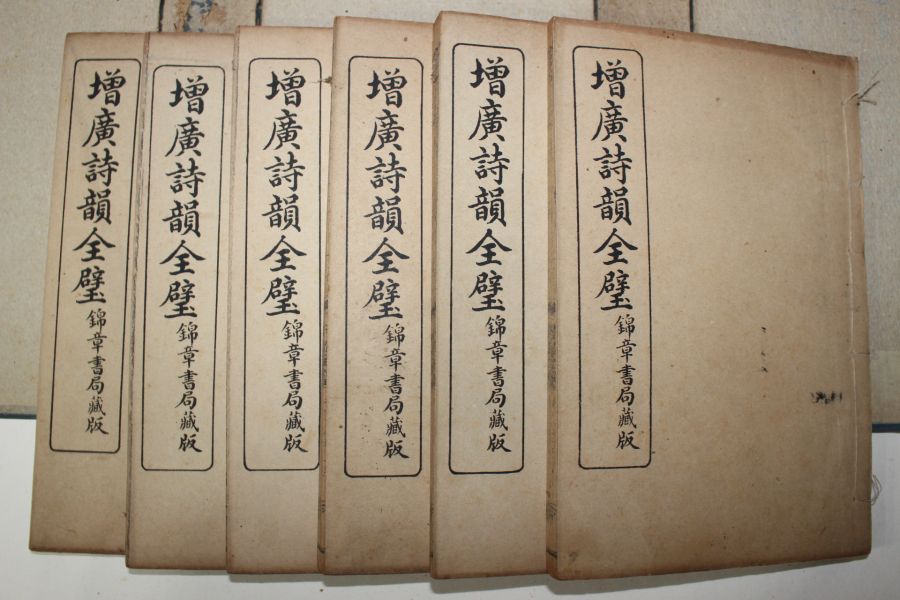 增廣詩韻全璧 錦章書局藏版
增廣詩韻全璧 錦章書局藏版
增廣詩韻全璧 錦章書局藏版
增廣詩韻全璧 錦章書局藏版
增廣詩韻全璧 錦章書局藏版
增廣詩韻全璧 錦章書局藏版